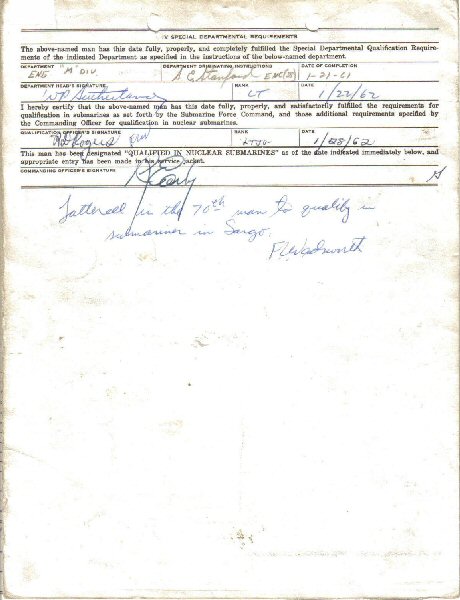 IV SPECIAL DEPARTMENTAL REQUIREMENTS
The above-named man has this date fully, properly, and completely fulfilled the Special Departmental Qualification Require-
ments of the indicated Department as specified in the instructions of the below-named department.
DEPARTMENT DEPARTMENT INSTRUCTIONS DATE OF COMPLETION
ENG "M" DIV. 1-21-61
DEPARTMENT HEAD'S SIGNATURE RANK DATE
LT 1/22/62
I hereby certify that the above-named man has this date fully, properly, and satisfactorily fulfilled the requirements for
qualification in submarines as set forth by the Submarine Force Command, and those additional requirements specified by
the Commanding Officer for qualification in nuclear submarines.
QUALIFICATION OFFICER'S SIGNATURE RANK DATE
Rogers LTJG 1/28/62
This man has been designated "QUALIFIED IN NUCLEAR SUBMARINES" as of the date indicated immediately below, and
appropriate entry has been made in his service jacket.
COMMANDING OFFICER'S SIGNATURE
is the 70th man to qualify in
submarines in Sargo.
F L Wadsworth